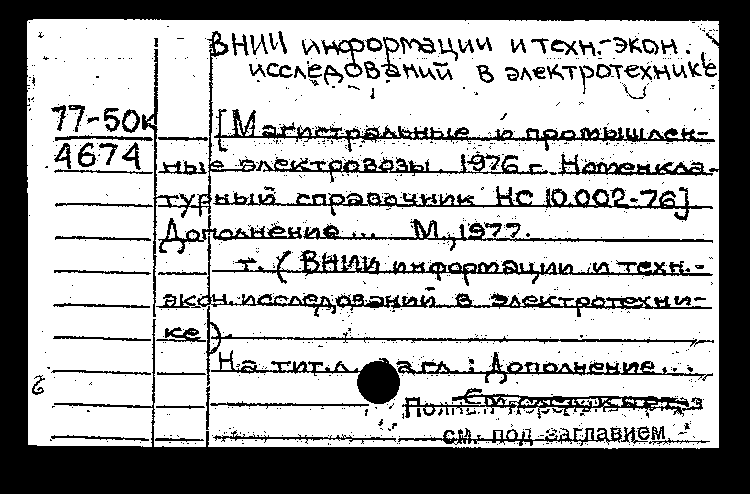 ВНИИ информации и техн.-экон.
исследований в электротехнике
77-50к [Магистральные и промышлен-
4674 ные электровозы. 1976 г. Номенкла-
турный справочник НС 10.002-76]
Дополнение... М., 1977.
т. (ВНИИ информации и техн.-
экон. исследований в электротехни-
ке).
На тит.л. загл.: Дополнение...
6
Полный
см. под заглавием